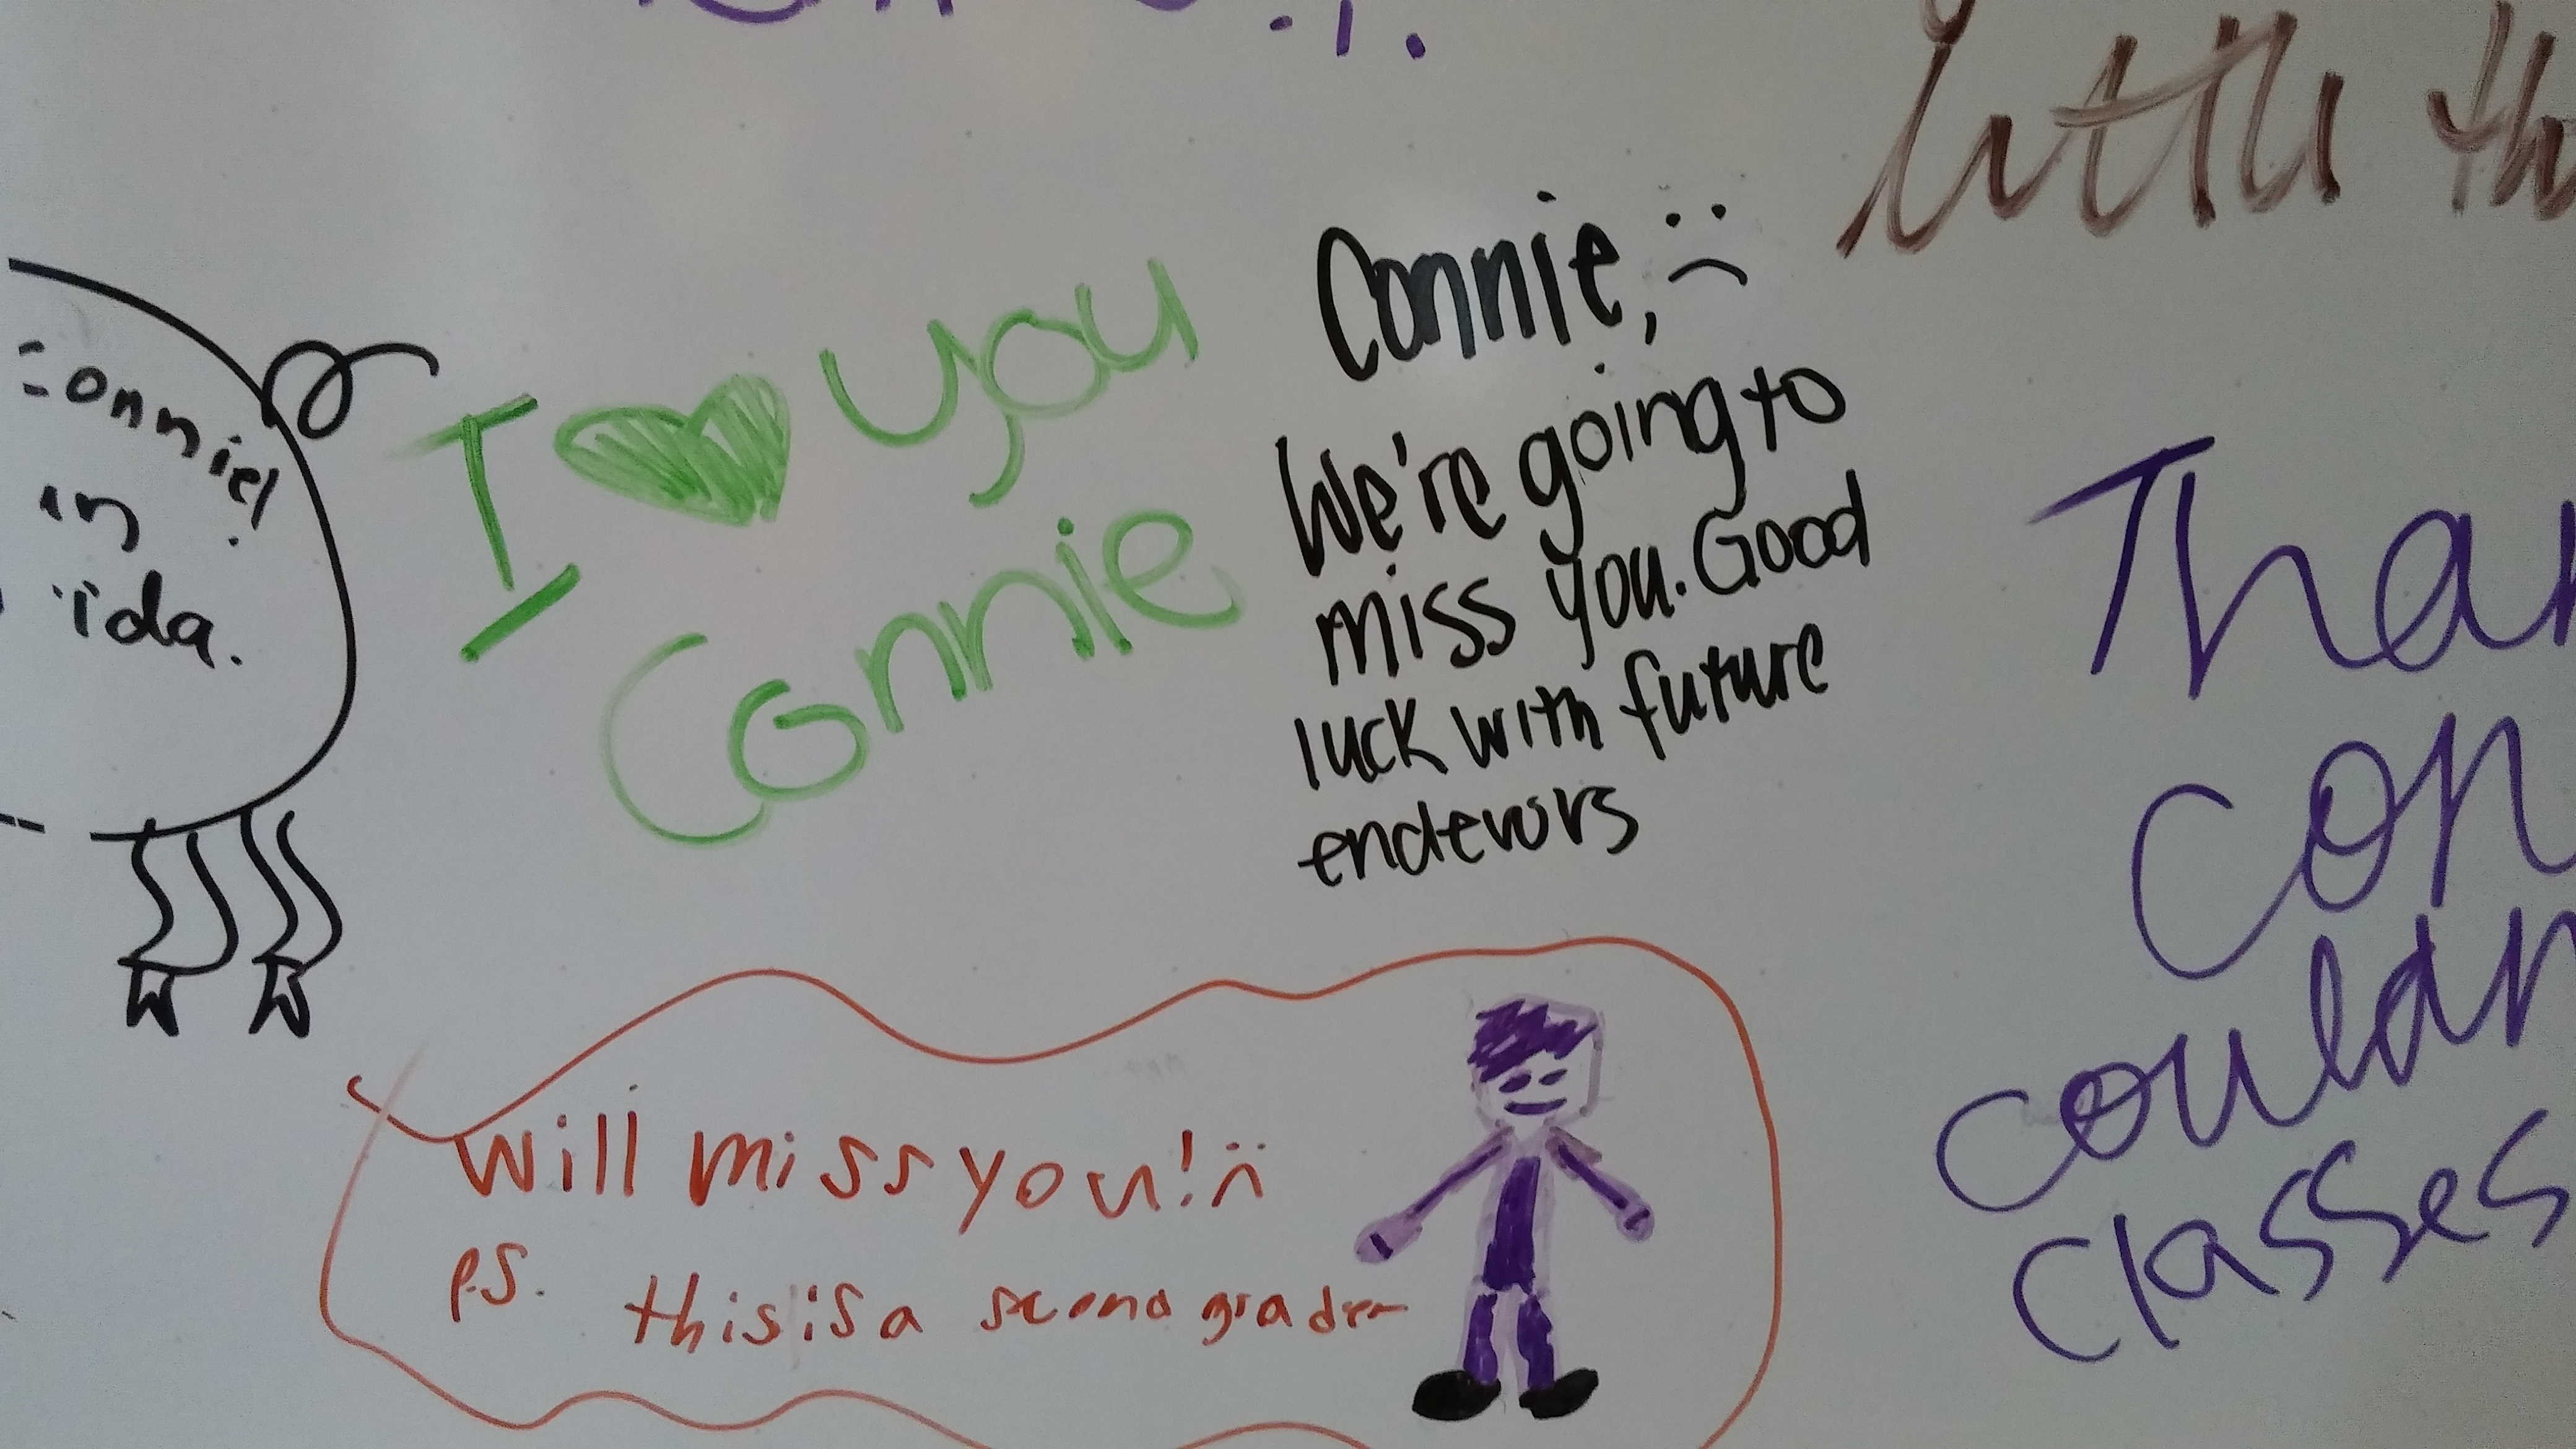 Connie!
in
I ♥ you
Connie
Connie, :(
We're going to
miss you. Good
luck with future
endevors
will miss you! :(
P.S. this is a second grader
little th
Than
Con
couldn
classes